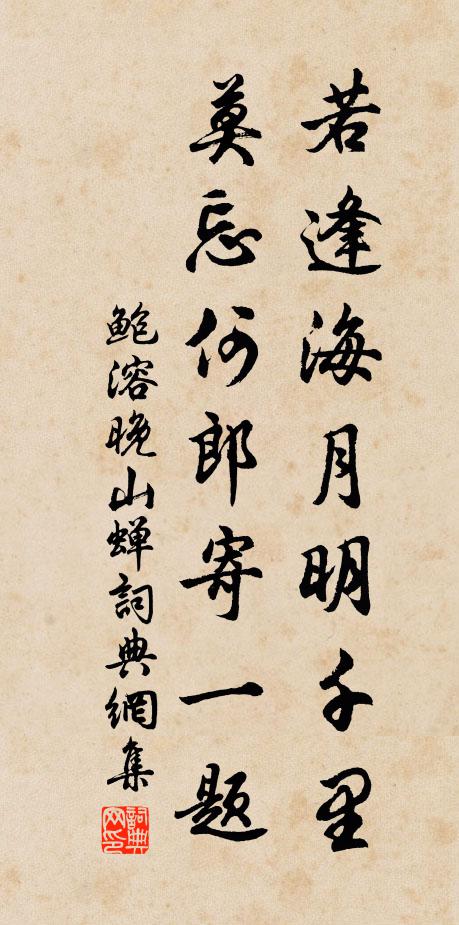 若逢海月明千里
莫忘何郎寄一题
鲍溶晚山蝉詞典網集
詞典网印